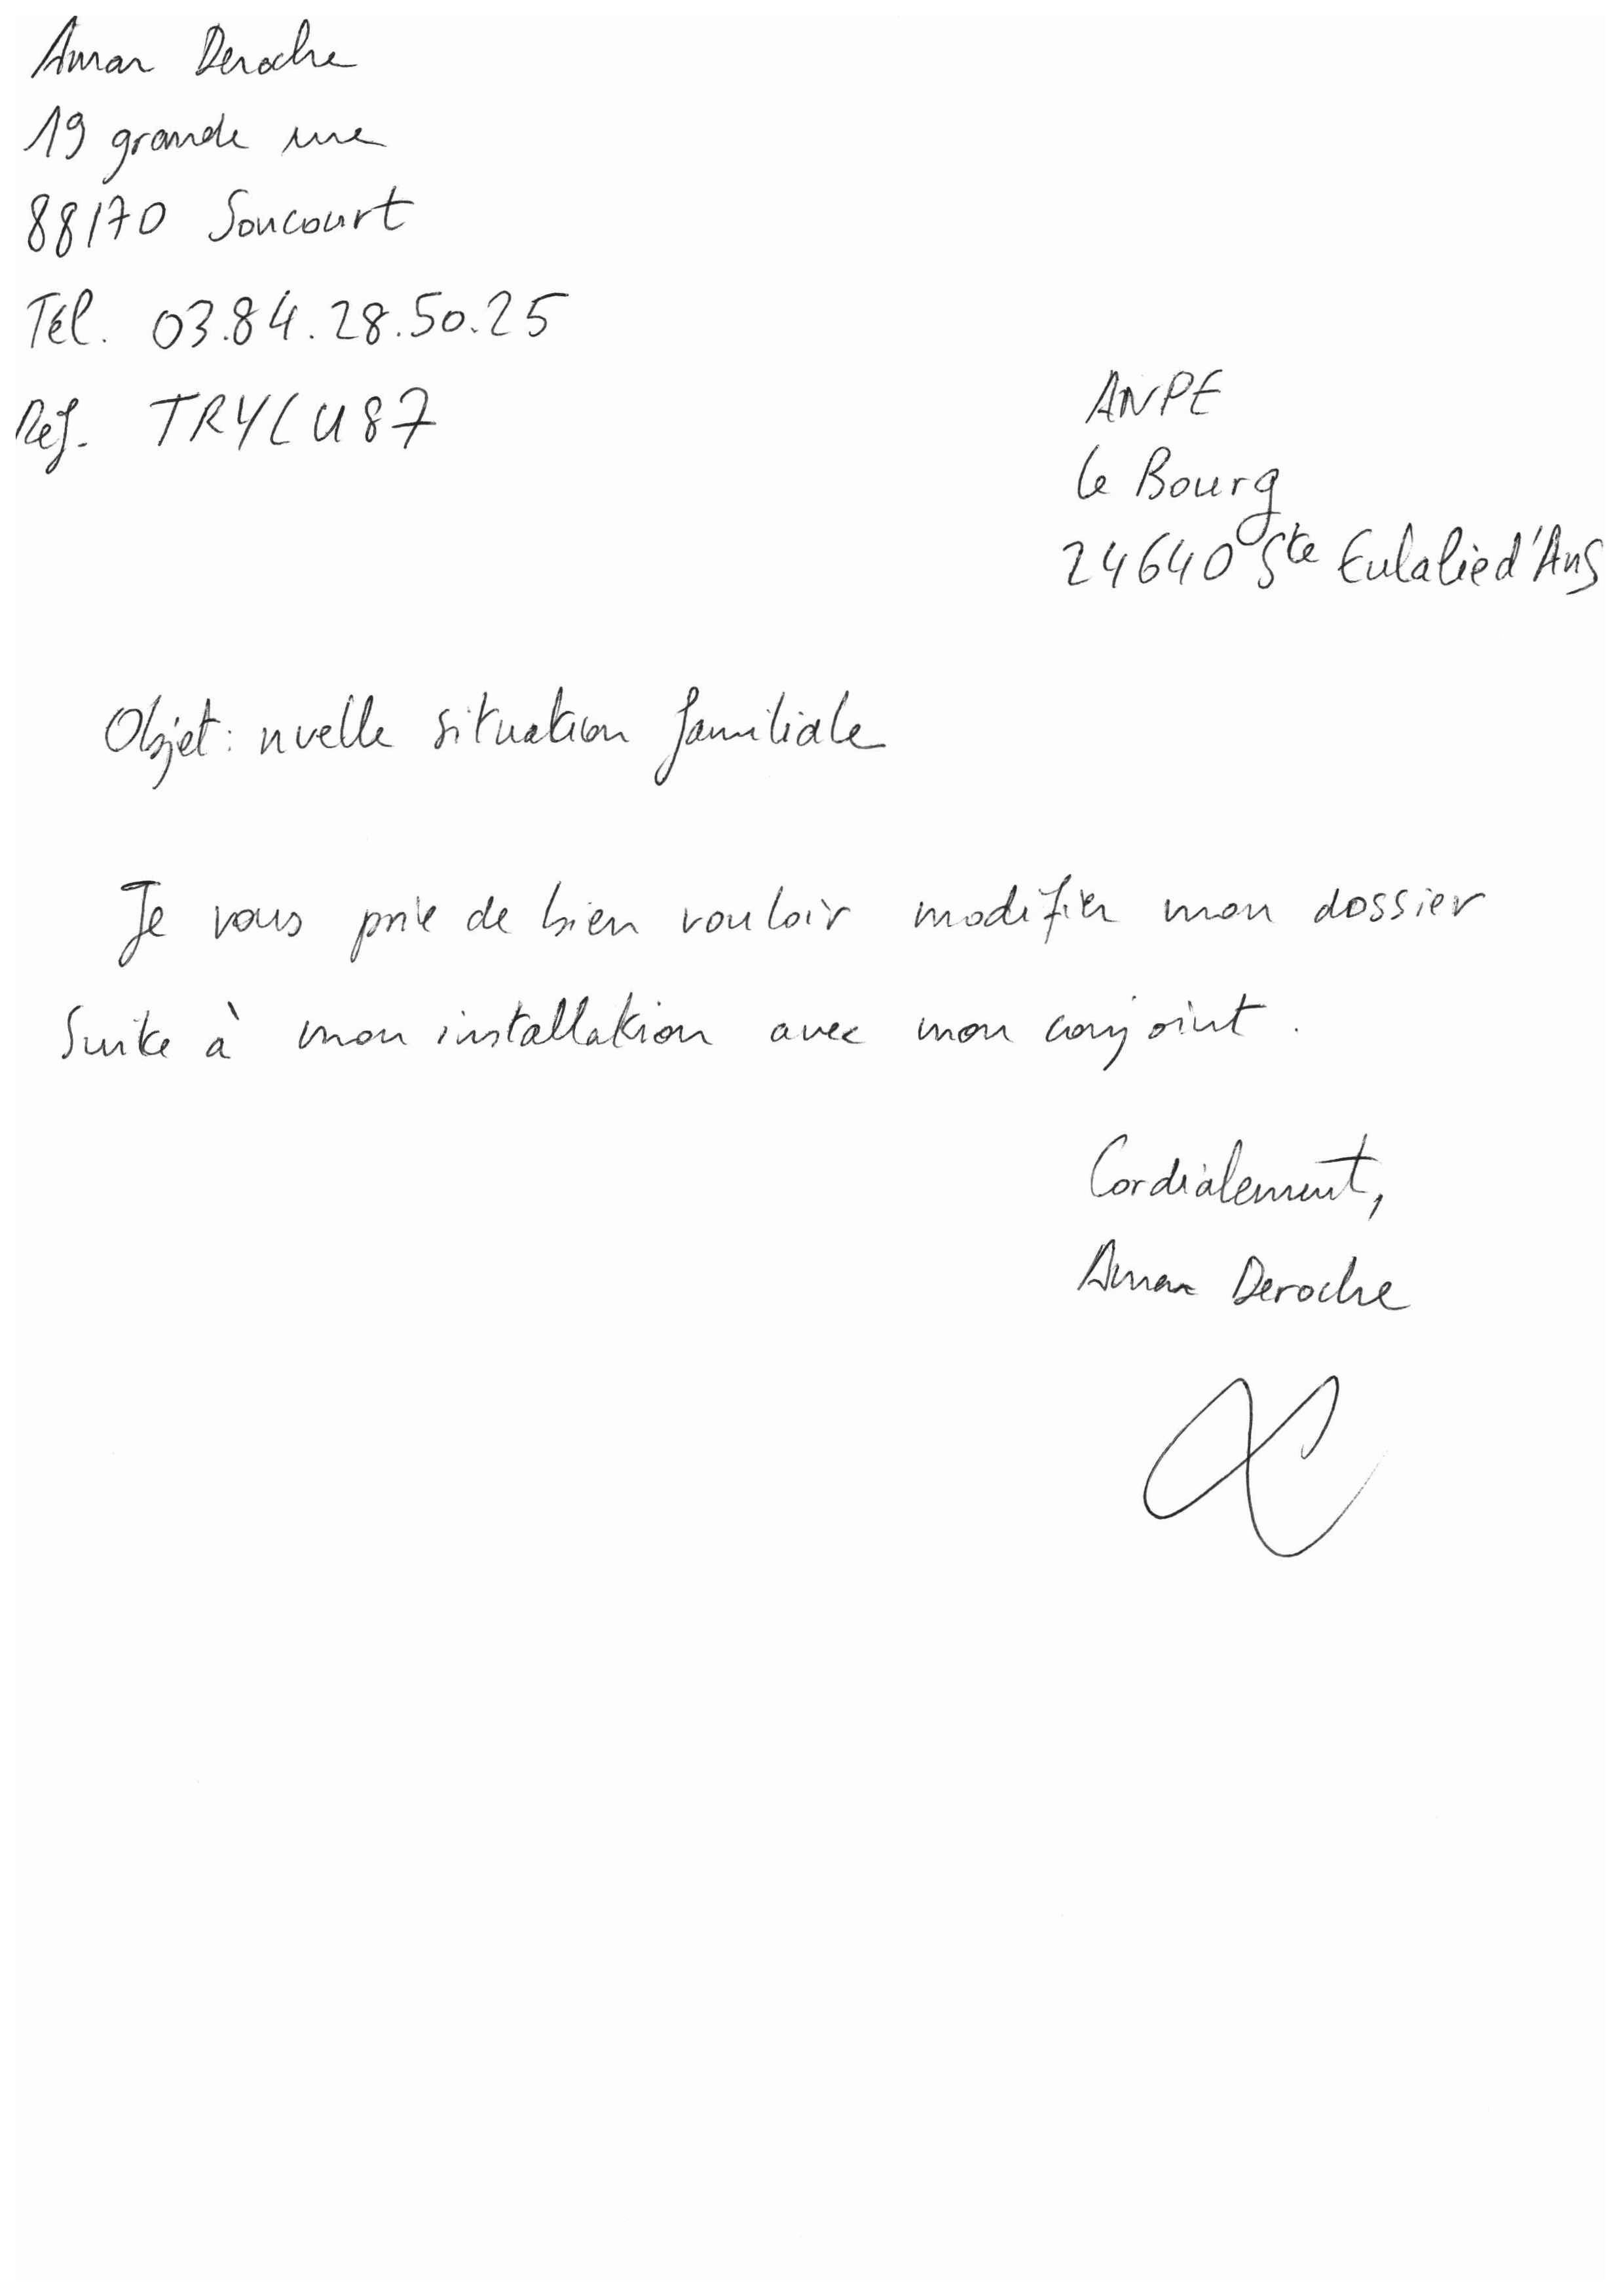 Amar Deroche
19 grande rue
88170 Soncourt
Tél. 03.84.28.50.25
Réf. TRYLU87
ANPE
Le Bourg
24640 Ste Eulalie d'Ans
Objet : nvelle situation familiale
Je vous prie de bien vouloir modifier mon dossier
suite à mon installation avec mon conjoint.
Cordialement,
Amar Deroche